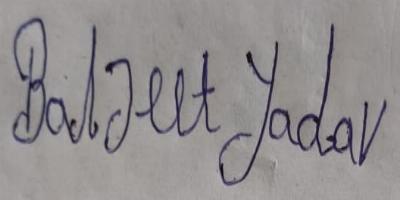 Baljeet Yadav